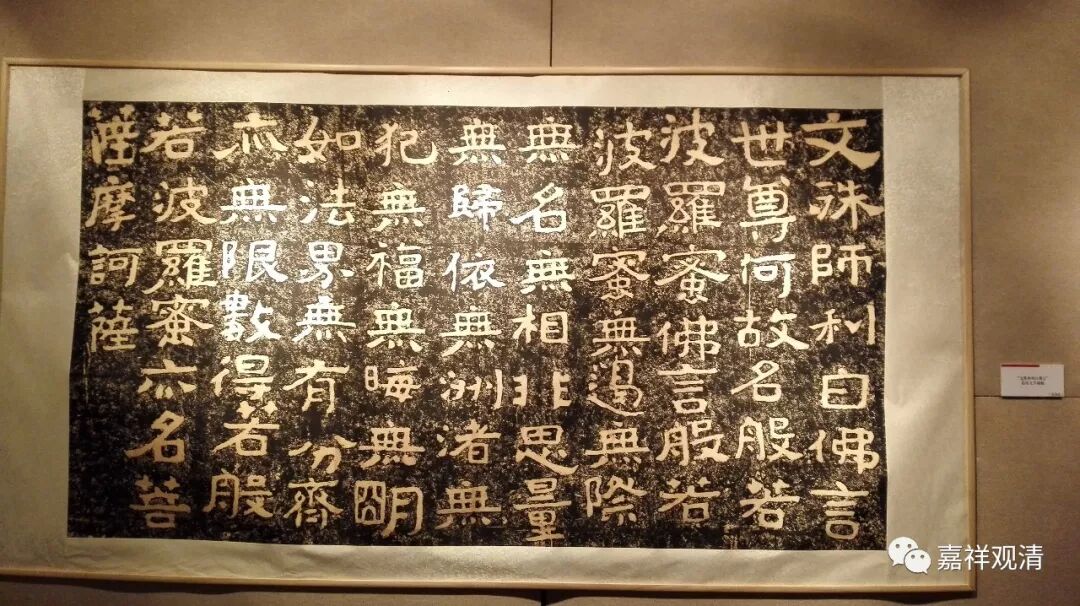 文殊師利白佛言
世尊何故名般若
波羅蜜佛言般若
波羅蜜無邊無際
無名無相非思量
無歸依無洲渚無
犯無福無晦無明
如法界無有分齊
亦無限數得若般
若波羅蜜亦名菩
薩摩訶薩
嘉祥观清